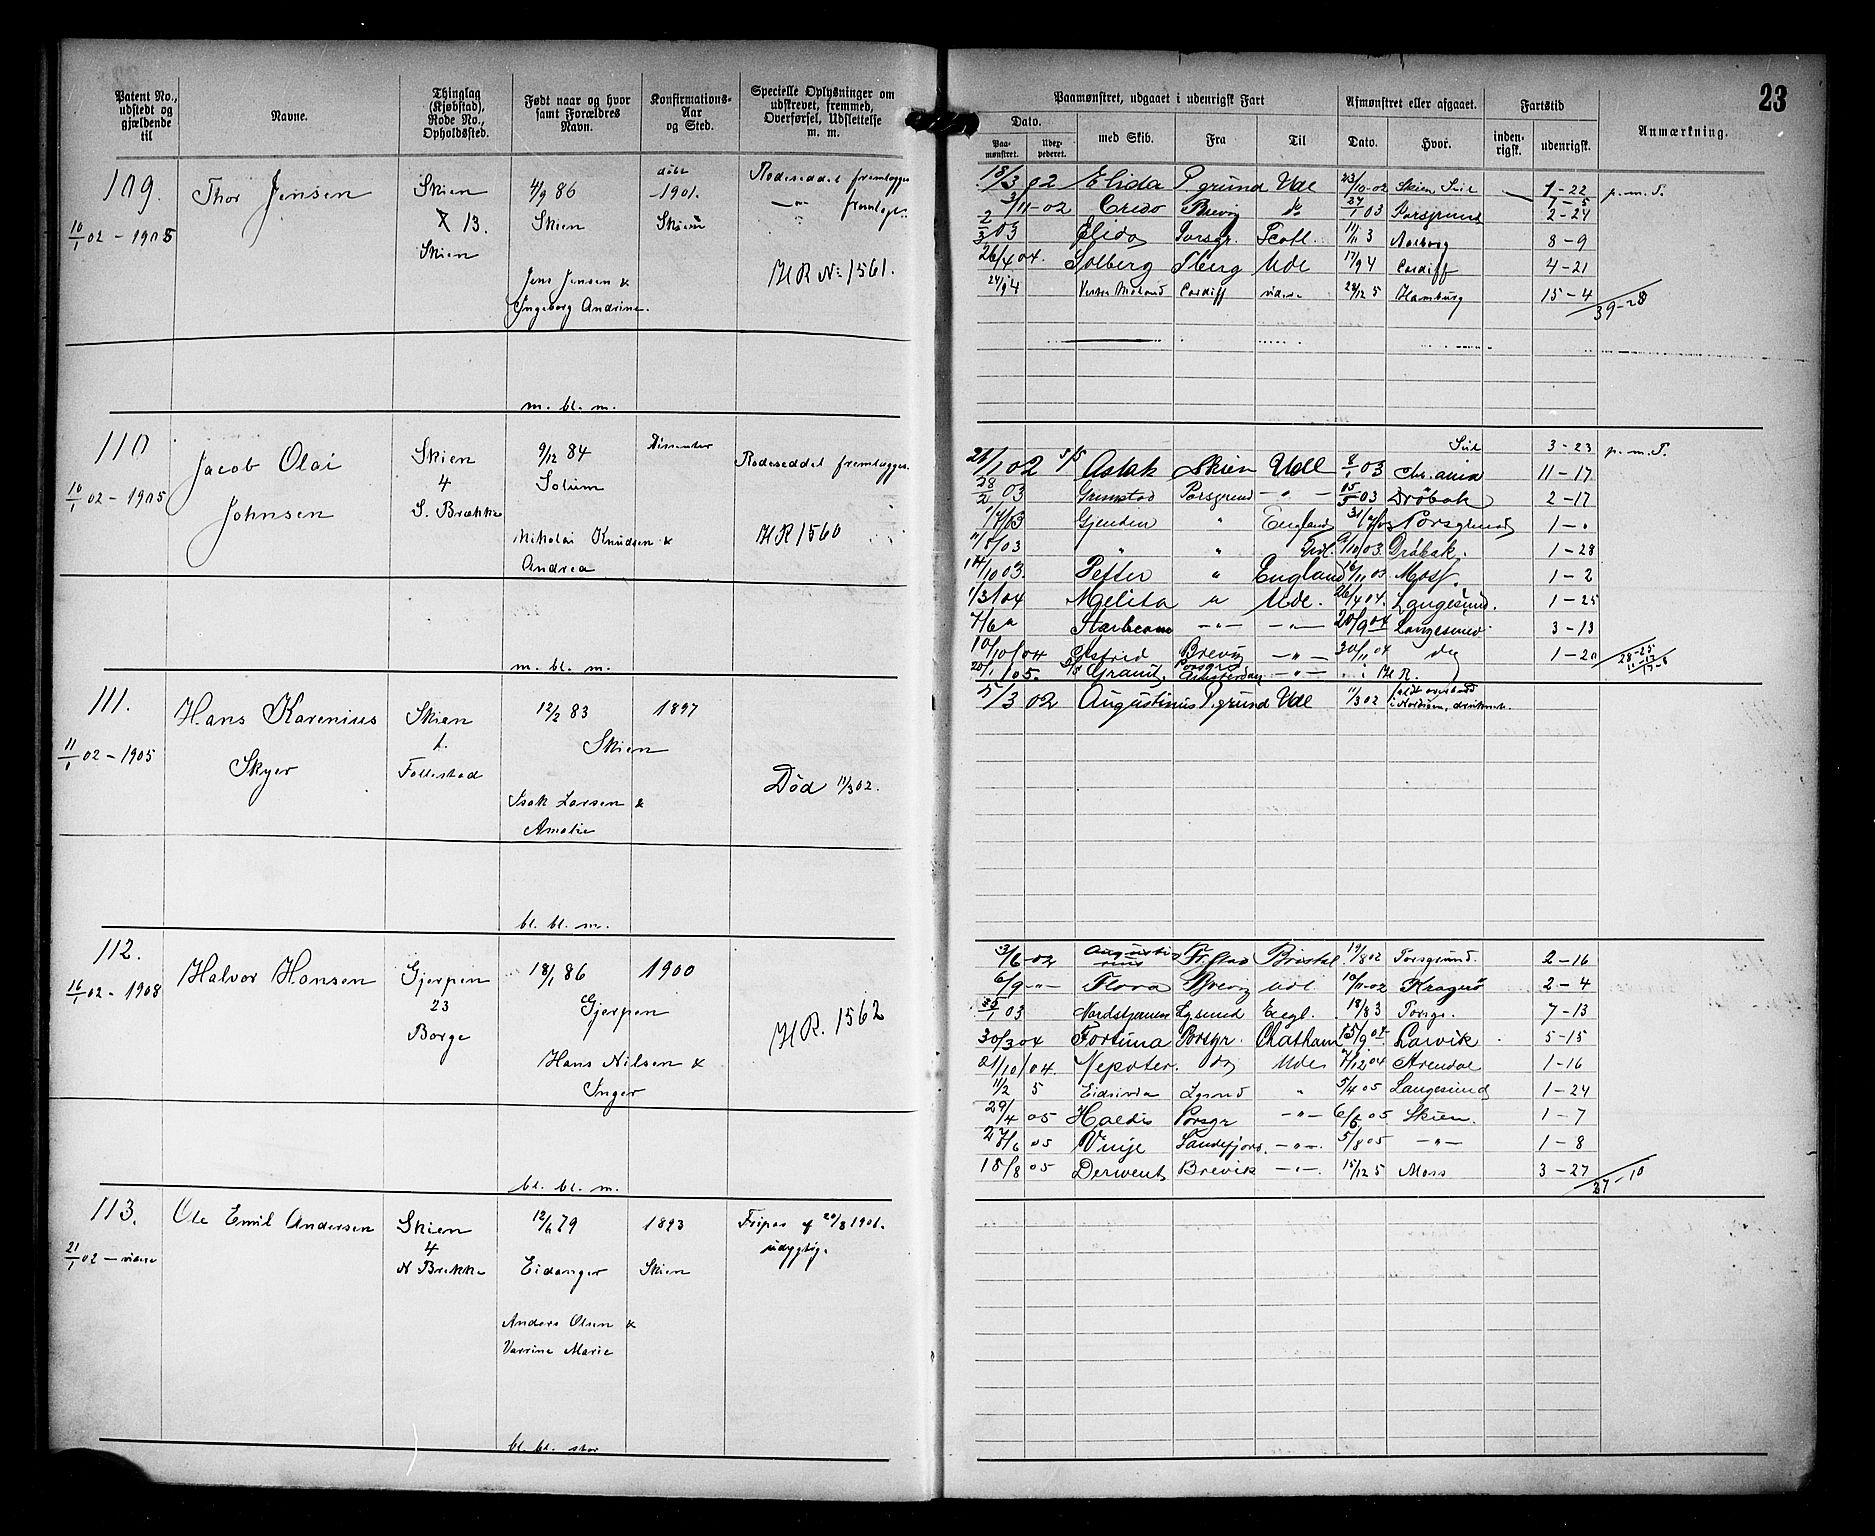 23
Patent No., udstedt og gjældende til
Navne.
Thinglag (Kjøbstad), Rode No., Opholdssted.
Født naar og hvor samt Forældres Navn.
Konfirmations-Aar og Sted.
Specielle Oplysninger om udskrevet, fremmed, Overførsel, Udslettelse m. m.
Paamønstret, udgaaet i udenrigsk Fart
Afmønstret eller afgaaet.
Fartstid
Anmærkning.
Dato.
Paa-mønstret.
med Skib.
Fra
Til
Dato.
Hvor.
inden-rigsk.
udenrigsk.
109.
10/1 02 - 1905
Thor Jensen
Skien
13.
Skien
4/9 86
Skien
Jens Jensen &
Ingeborg Andrine.
døbt
1901.
Skien
Rodeseddel fremlægges
—"— fremlagt.
HR No 1561.
m. bl. m.
18/3 02 Elida P.grund Ude 23/10-02 Skien 1-22 p.m.T.
3/11-02 Credo Brevig do 27/1 03 Porsgrund 2-24
2/3 03 Elida Porsgr. Scotl. 11/11 3 Aalborg 8-9
26/4 04. Solberg Tberg Ude 17/9 4 Cardiff 4-21
24/9 4 Vestre Moland Cardiff videre 28/12 5 Hamburg 15-4
39-28
110
10/1 02 - 1905
Jacob Olai
Johnsen
Skien
4
S. Brække
9/12 84
Solum
Nikolai Knudsen &
Andrea
Dissenter
Rodeseddel fremlægges.
HR 1560
m. bl. m.
3-23 p.m.T.
21/1 02 Aslak Skien Udl 8/1 03 Chr.ania 11-17
28/2 03 Grimstad Porsgrund —"— 15/5 03 Drøbak 2-17
Gjenden " England Porsgrund
11/5/03 " " Udl. 9/10 03. Drøbak. 1-28
14/10 03. Petter " England 16/11 03 Moss. 1-2
1/3/04 Melita " Ude. 26/4 04. Langesund. 1-25
7/6 " Starbeam —"— —"— 20/9 04 Langesund 3-13
10/10/04 Brevig —"— 30/11 04 do 1-20
20/1 05. D/S Grand, Porsgr. Amsterdam —"— HR.
111.
11/1 02 - 1905
Hans Karenius
Skyer
Skien
1.
Follestad
12/2 83
Skien
Isak Larsen &
Amalie
1897
Død 11/3 02.
bl. bl. m.
5/3 02 Augustinus P.grund Ude 11/3 02 faldt overbord
i Nordsøen, druknede.
112.
16/1 02 - 1908
Halvor Hansen
Gjerpen
23
Borge
18/1 86
Gjerpen
Hans Nilsen &
Inger
1900
HR. 1562
bl. bl. m.
3/6-02 Augustinus Fr.stad Bristol 19/8 02 Porsgrund. 2-16
6/9-"- Flora Brevig Udl 10/11-02 Kragerø 2-4
03 Nordstjernen Egersund Engl. 18/8 3 Porsgr. 7-13
30/3 04 Fortuna Porsgr. Chatham 15/9 04 Larvik 5-15
21/10/04. Nepoter. do Ude 7/12 04 Arendal 1-16
11/2 5 Eidsivia Lgsund " 5/4 05 Langesund 1-24
29/4 05 Haldis Porsgr —"— 6/6 05 Skien. 1-7
27/6 05 Vinje Sandefjord. —"— 5/8 05 —"— 1-8
18/8 05 Derwent Brevik —"— 15/12 5 Moss 3-27
27-10
113.
21/1 02 - videre
Ole Emil Andersen
Skien
4
N Brekke
12/6 79
Eidanger
Anders Olsen &
Varrine Marie
1893
Skien
Fripas af 20/3 1901.
udygtig.
bl. bl. stor